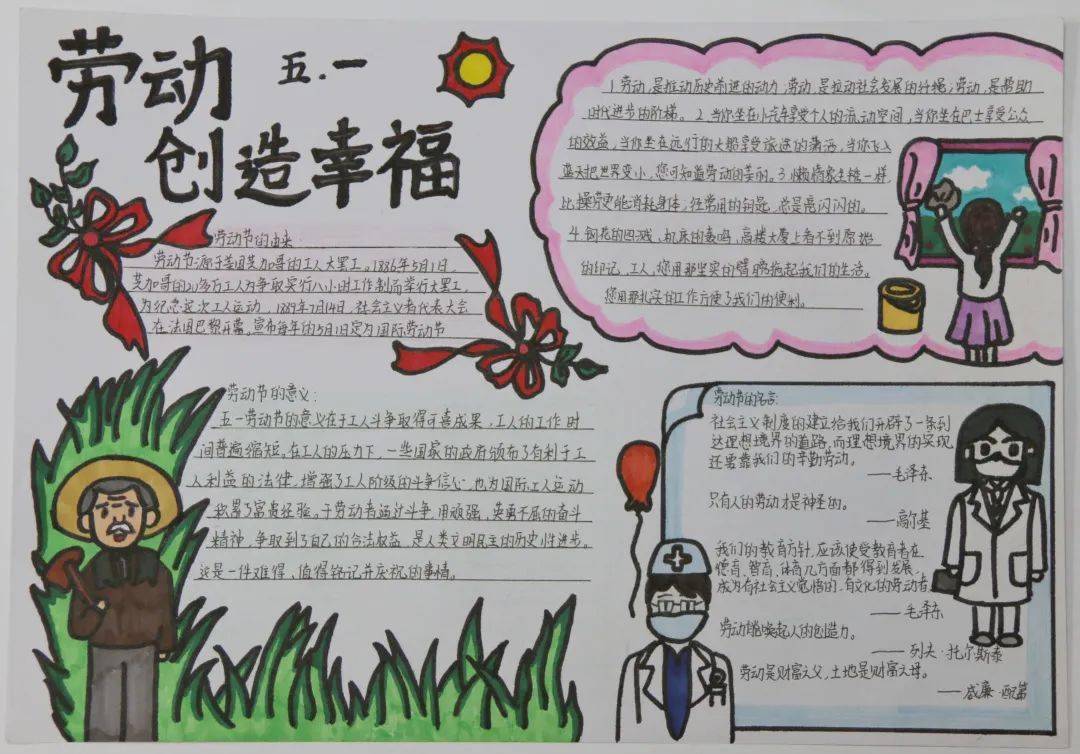 劳动
五.一
创造幸福
劳动节的由来:
劳动节源于美国芝加哥的工人大罢工。1886年5月1日,
芝加哥的20多万工人为争取实行八小时工作制而举行大罢工,
为纪念这次工人运动,1889年7月14日,社会主义者代表大会
在法国巴黎开幕。宣布每年的5月1日定为国际劳动节
1.劳动,是推动历史前进的动力,劳动,是拉动社会发展的纤绳;劳动,是帮助
时代进步的阶梯。2.当你坐在小汽车享受个人的流动空间,当你坐在巴士享受公众
的效益,当你坐在远行的大船享受旅途的潇洒,当你飞入
蓝天把世界变小,您可知道劳动的美丽。3.懒惰象生锈一样,
比操劳更能消耗身体,经常用的钥匙,总是亮闪闪的。
4.钢花的四溅,机床的轰鸣,高楼大厦上看不到原始
的印记,工人,您用那坚实的臂膀拖起我们的生活。
您用那扎实的工作方便了我们的便利。
劳动节的意义:
五一劳动节的意义在于工人斗争取得可喜成果,工人的工作时
间普遍缩短,在工人的压力下,一些国家的政府颁布了有利于工
人利益的法律,增强了工人阶级的斗争信心,也为国际工人运动
积累了富贵经验。于劳动者通过斗争,用顽强、英勇不屈的奋斗
精神,争取到了自己的合法权益,是人类文明民主的历史性进步。
这是一件难得、值得铭记并庆祝的事情。
劳动节的名言:
社会主义制度的建立给我们开辟了一条到
达理想境界的道路,而理想境界的实现
还要靠我们的辛勤劳动。
——毛泽东
只有人的劳动才是神圣的。
——高尔基
我们的教育方针,应该使受教育者在
德育、智育、体育几方面都得到发展,
成为有社会主义觉悟的,有文化的劳动者
——毛泽东
劳动能唤起人的创造力。
——列夫·托尔斯泰
劳动是财富之父,土地是财富之母。
——威廉·配第